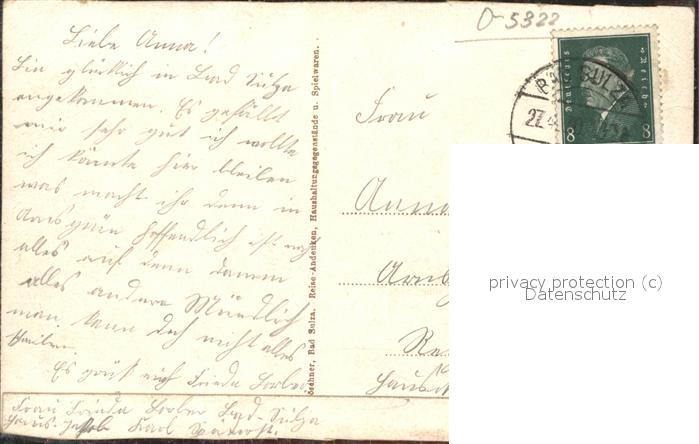 O-5322
Liebe Anna!
Bin glücklich in Bad Sulza
angekommen. Es gefällt
mir sehr gut ich wollte
ich könnte hier bleiben
was macht ihr denn in
hoffendlich ist noch
alles auf dem Damm
alles andere Mündlich
man kann doch nicht alles
Es grüßt euch Frieda
Frau Frieda Bad-Sulza
Haus Karl
öschner, Bad Sulza. Reise-Andenken, Haushaltungsgegenstände u. Spielwaren.
Frau
Anna
Deutsches Reich
8 8
BAD SULZA
27.4
privacy protection (c)
Datenschutz